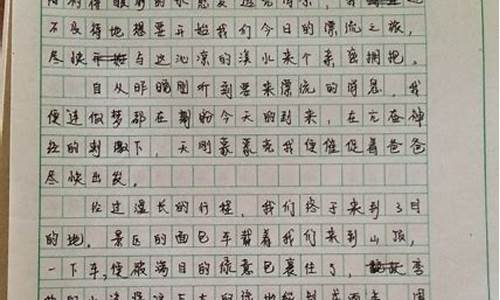 不及待地想要开始我们今日的漂流之旅，
尽快与这沁凉的溪水来个亲密拥抱。
自从昨晚刚听到要来漂流的消息，我
便连做梦都在期盼今天的到来，在亢奋神
经的刺激下，天刚蒙蒙亮我便催促着爸爸
尽快出发。
经过漫长的行程，我们终于来到了目
的地，景区的面包车载着我们来到山顶，
一下车，便被满目的绿意包裹住了，